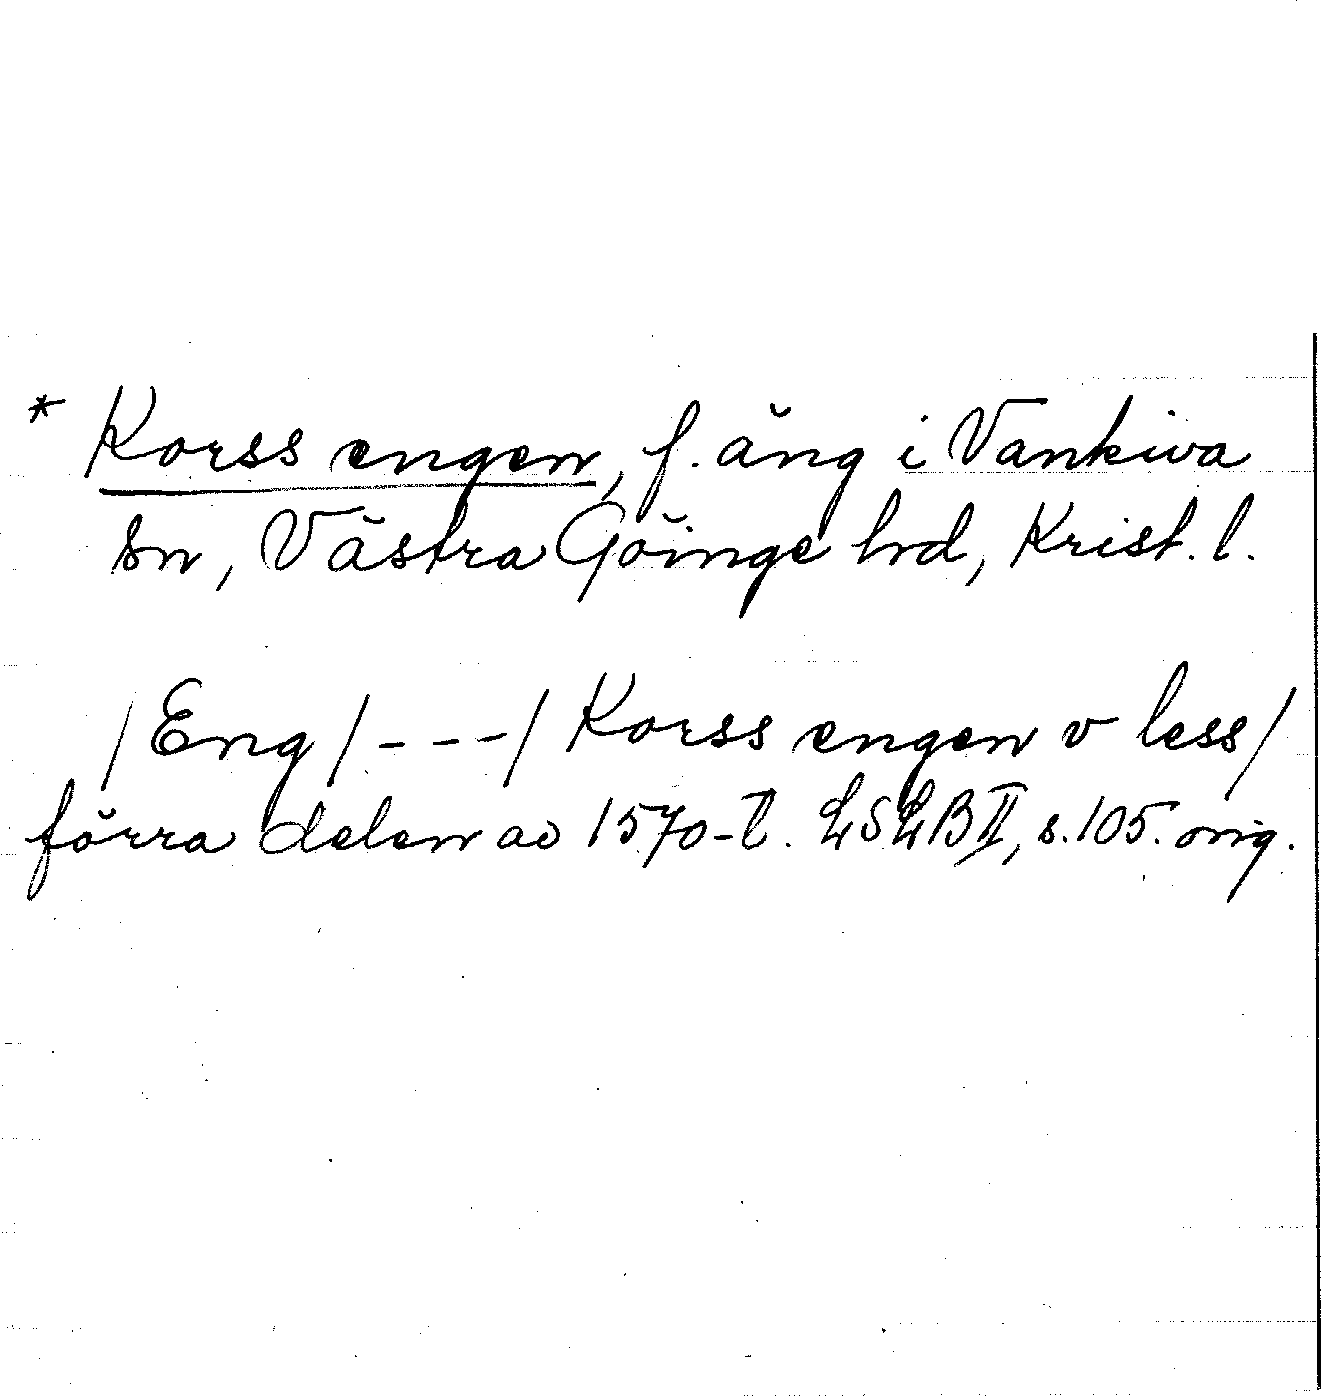 * Korss engen, f. äng i Vankiva
sn, Västra Göinge hd, Krist. l.
/Eng/---/Korss engen v less/
förra delen av 1570-t. LSLB II, s. 105. orig.